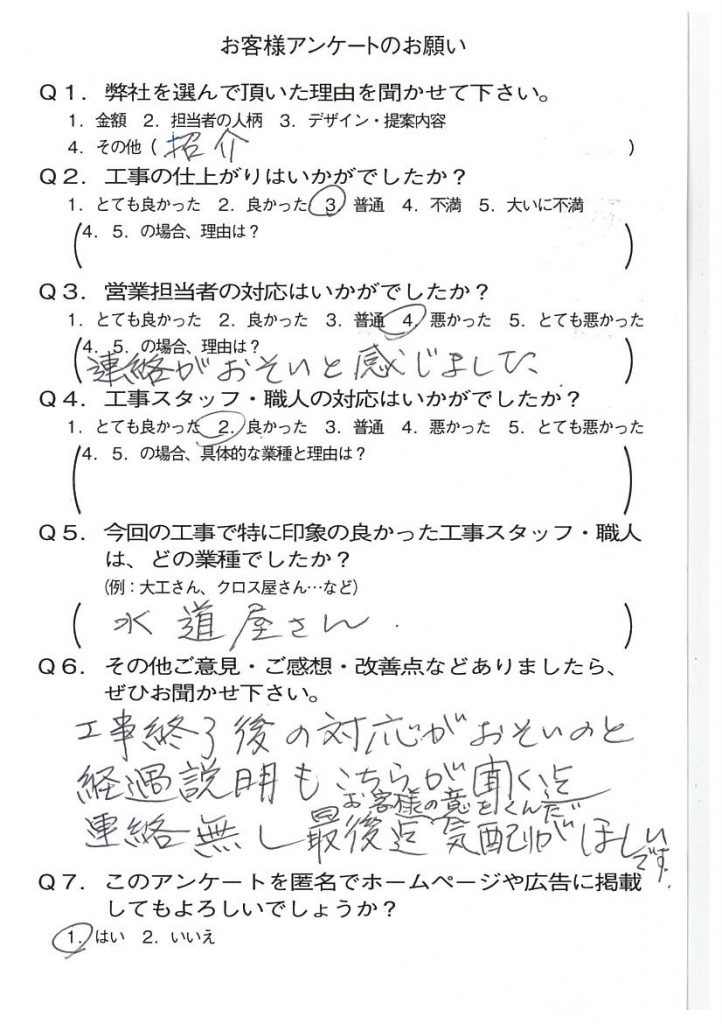 お客様アンケートのお願い
Q1．弊社を選んで頂いた理由を聞かせて下さい。
1．金額　2．担当者の人柄　3．デザイン・提案内容
4．その他（ 紹介 ）
Q2．工事の仕上がりはいかがでしたか？
1．とても良かった　2．良かった　3．普通　4．不満　5．大いに不満
（4．5．の場合、理由は？ ）
Q3．営業担当者の対応はいかがでしたか？
1．とても良かった　2．良かった　3．普通　4．悪かった　5．とても悪かった
（4．5．の場合、理由は？
連絡がおそいと感じました、 ）
Q4．工事スタッフ・職人の対応はいかがでしたか？
1．とても良かった　2．良かった　3．普通　4．悪かった　5．とても悪かった
（4．5．の場合、具体的な業種と理由は？ ）
Q5．今回の工事で特に印象の良かった工事スタッフ・職人
は、どの業種でしたか？
（例：大工さん、クロス屋さん…など）
（ 水道屋さん. ）
Q6．その他ご意見・ご感想・改善点などありましたら、
ぜひお聞かせ下さい。
工事終了後の対応がおそいのと
経過説明もこちらが聞く迄
お客様の意をくんだ
連絡無し最後迄気配りがほしい
です.
Q7．このアンケートを匿名でホームページや広告に掲載
してもよろしいでしょうか？
1．はい　2．いいえ